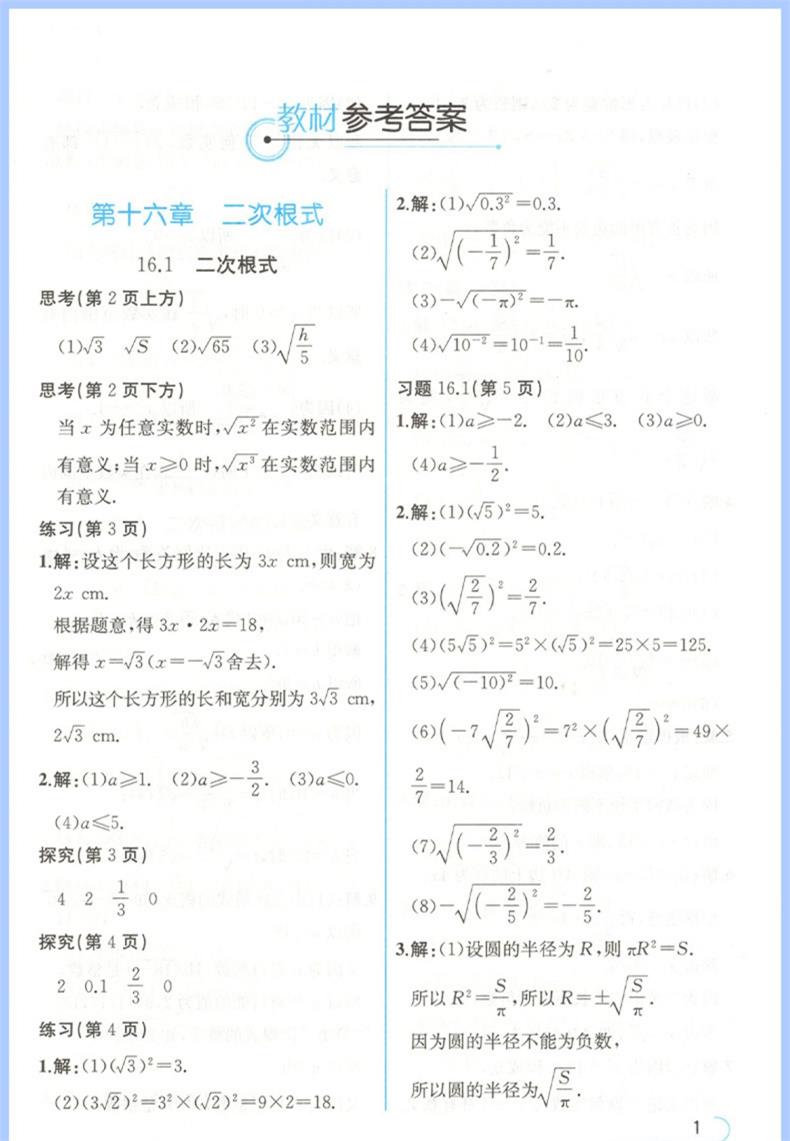 教材参考答案
第十六章 二次根式
16.1 二次根式
思考(第2页上方)
(1)√3 √S (2)√65 (3)√(h/5)
思考(第2页下方)
当 x 为任意实数时,√x² 在实数范围内
有意义;当 x≥0 时,√x³ 在实数范围内
有意义.
练习(第3页)
1.解:设这个长方形的长为 3x cm,则宽为
2x cm.
根据题意,得 3x·2x=18,
解得 x=√3(x=-√3舍去).
所以这个长方形的长和宽分别为 3√3 cm,
2√3 cm.
2.解:(1)a≥1. (2)a≥-3/2. (3)a≤0.
(4)a≤5.
探究(第3页)
4 2 1/3 0
探究(第4页)
2 0.1 2/3 0
练习(第4页)
1.解:(1)(√3)²=3.
(2)(3√2)²=3²×(√2)²=9×2=18.
2.解:(1)√0.3²=0.3.
(2)√(-1/7)²=1/7.
(3)-√(-π)²=-π.
(4)√10⁻²=10⁻¹=1/10.
习题 16.1(第5页)
1.解:(1)a≥-2. (2)a≤3. (3)a≥0.
(4)a≥-1/2.
2.解:(1)(√5)²=5.
(2)(-√0.2)²=0.2.
(3)(√(2/7))²=2/7.
(4)(5√5)²=5²×(√5)²=25×5=125.
(5)√(-10)²=10.
(6)(-7√(2/7))²=7²×(√(2/7))²=49×
2/7=14.
(7)√(-2/3)²=2/3.
(8)-√(-2/5)²=-2/5.
3.解:(1)设圆的半径为 R,则 πR²=S.
所以 R²=S/π,所以 R=±√(S/π).
因为圆的半径不能为负数,
所以圆的半径为√(S/π).
1